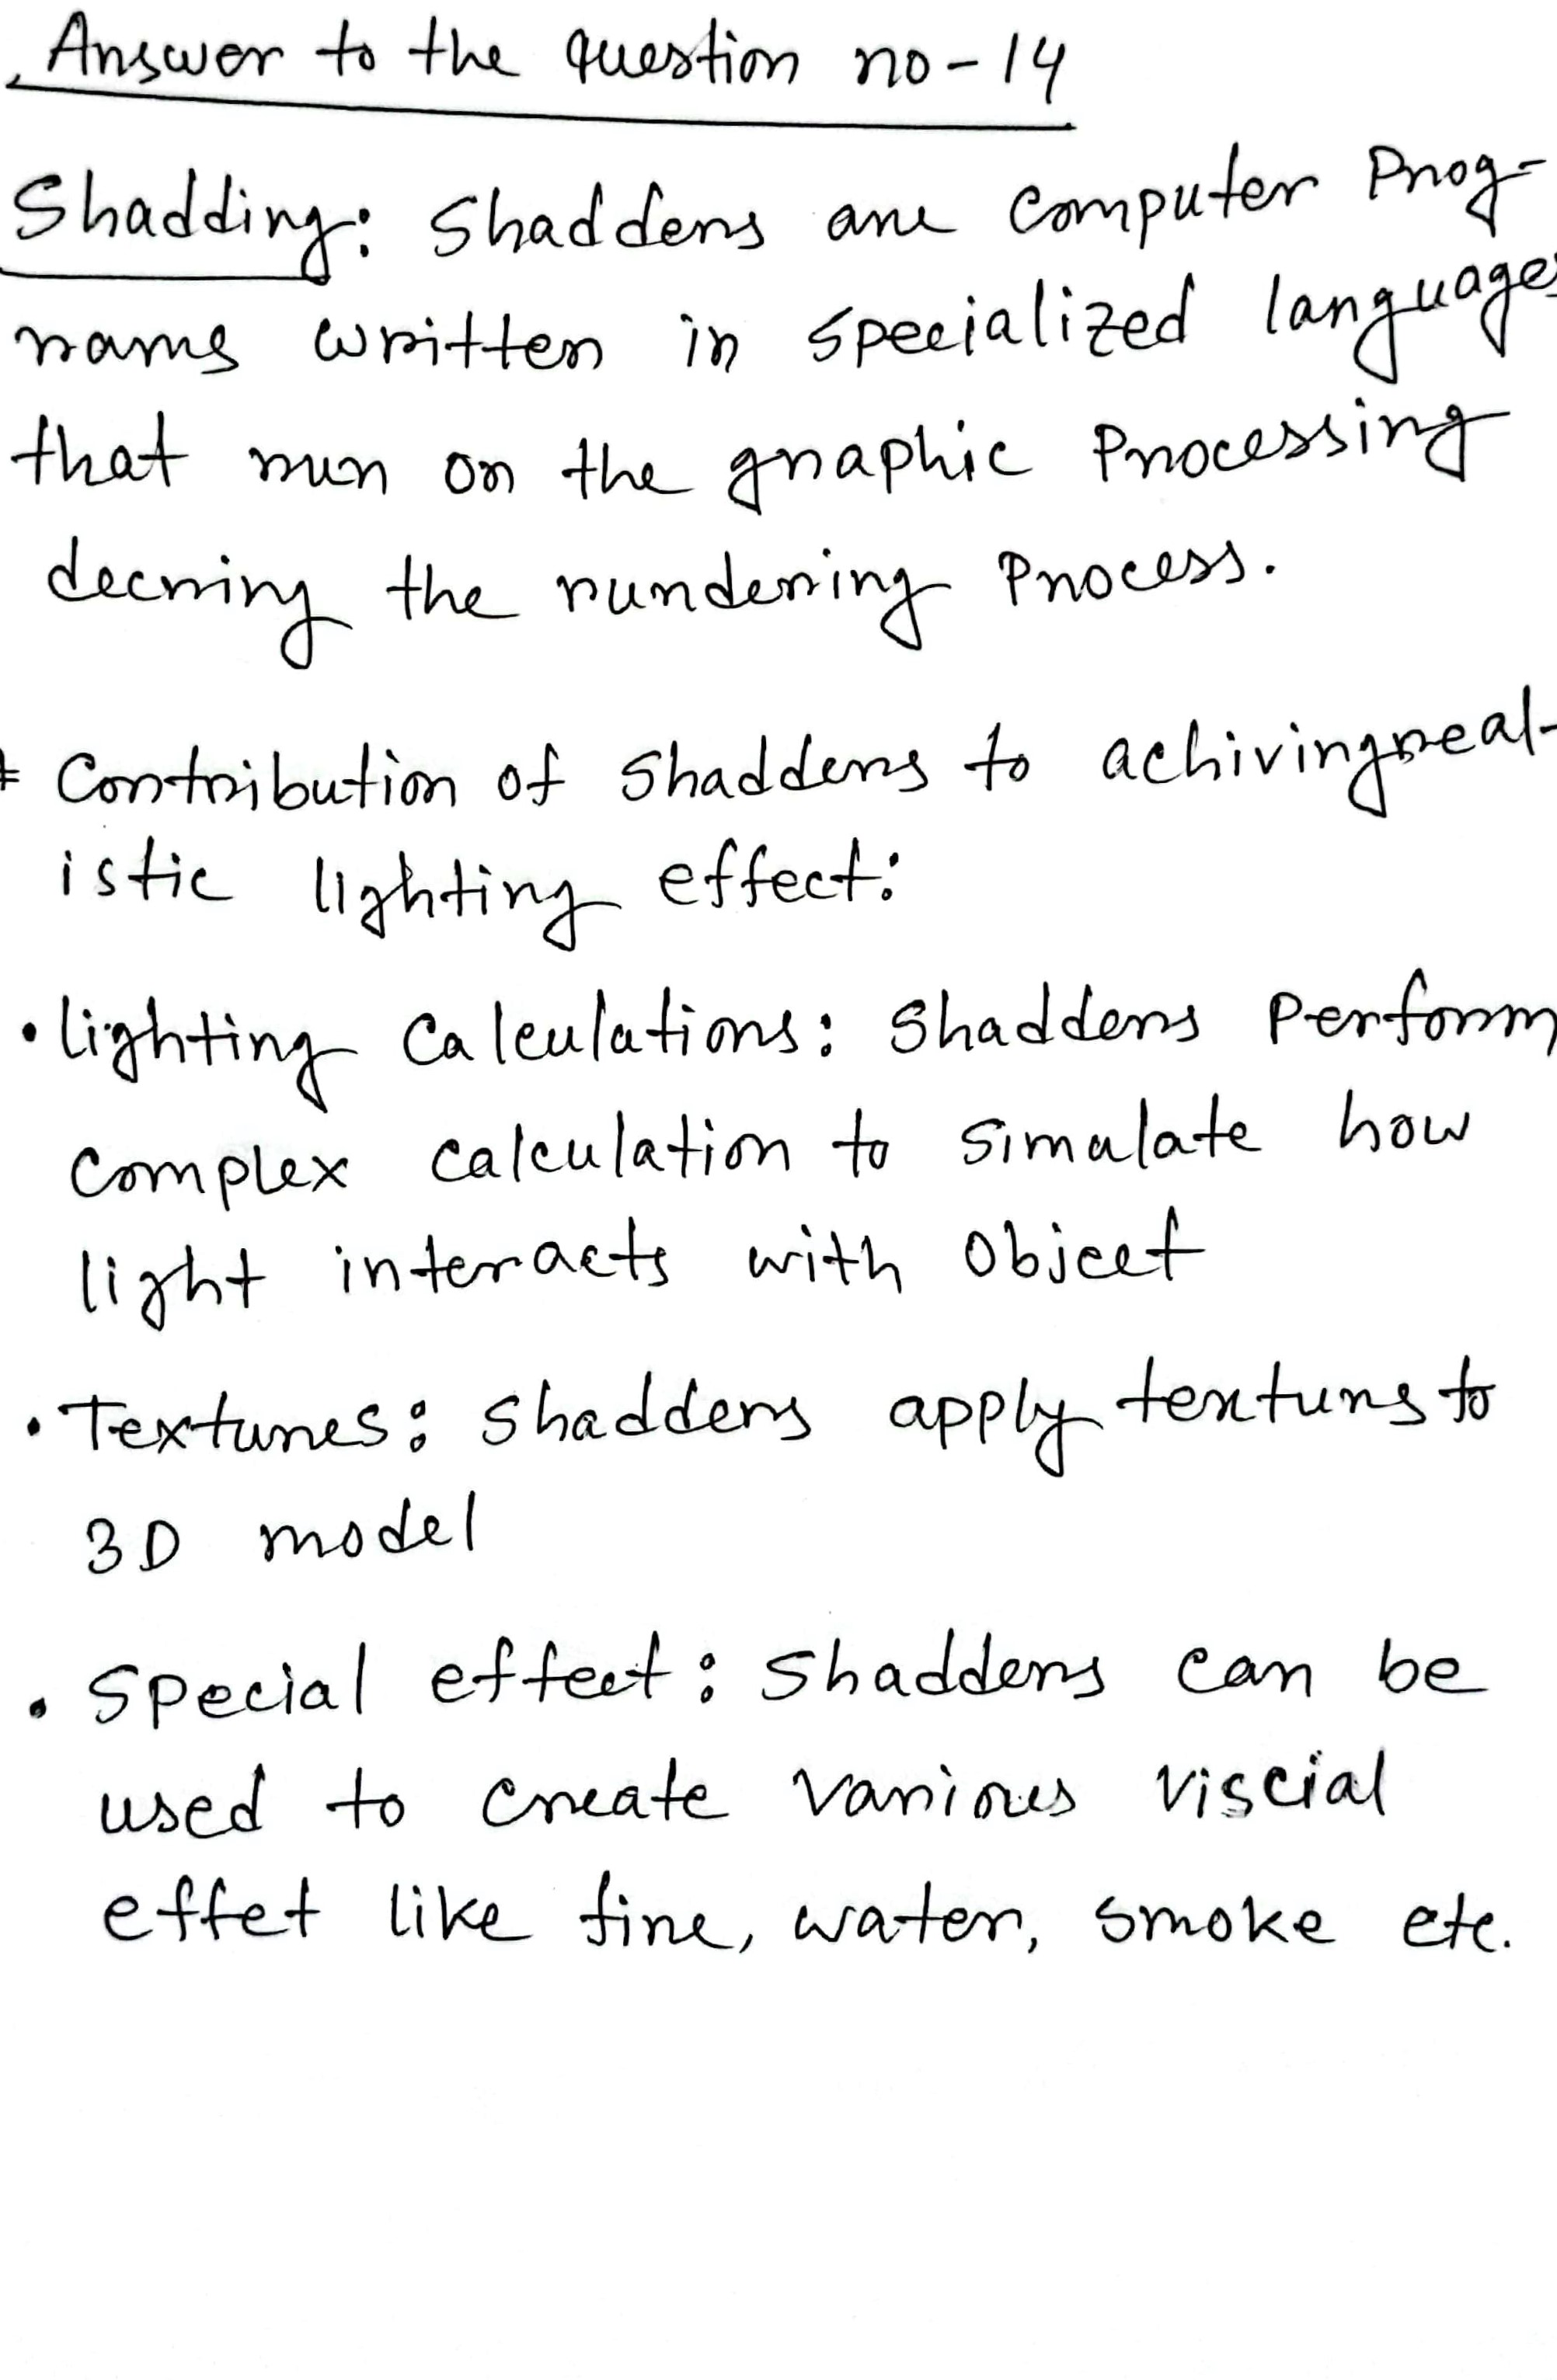 Answer to the question no-14
Shadding: Shadders are computer Prog-
rams written in specialized languages
that run on the graphic Processing
decring the rundering Process.
# Contribution of Shadders to achiving real-
istic lighting effect:
• lighting Calculations: Shadders Perform
complex calculation to simulate how
light interacts with object
• Textures: Shadders apply texturs to
3D model
• Special effect: Shadders can be
used to create various viscial
effet like fire, water, smoke etc.